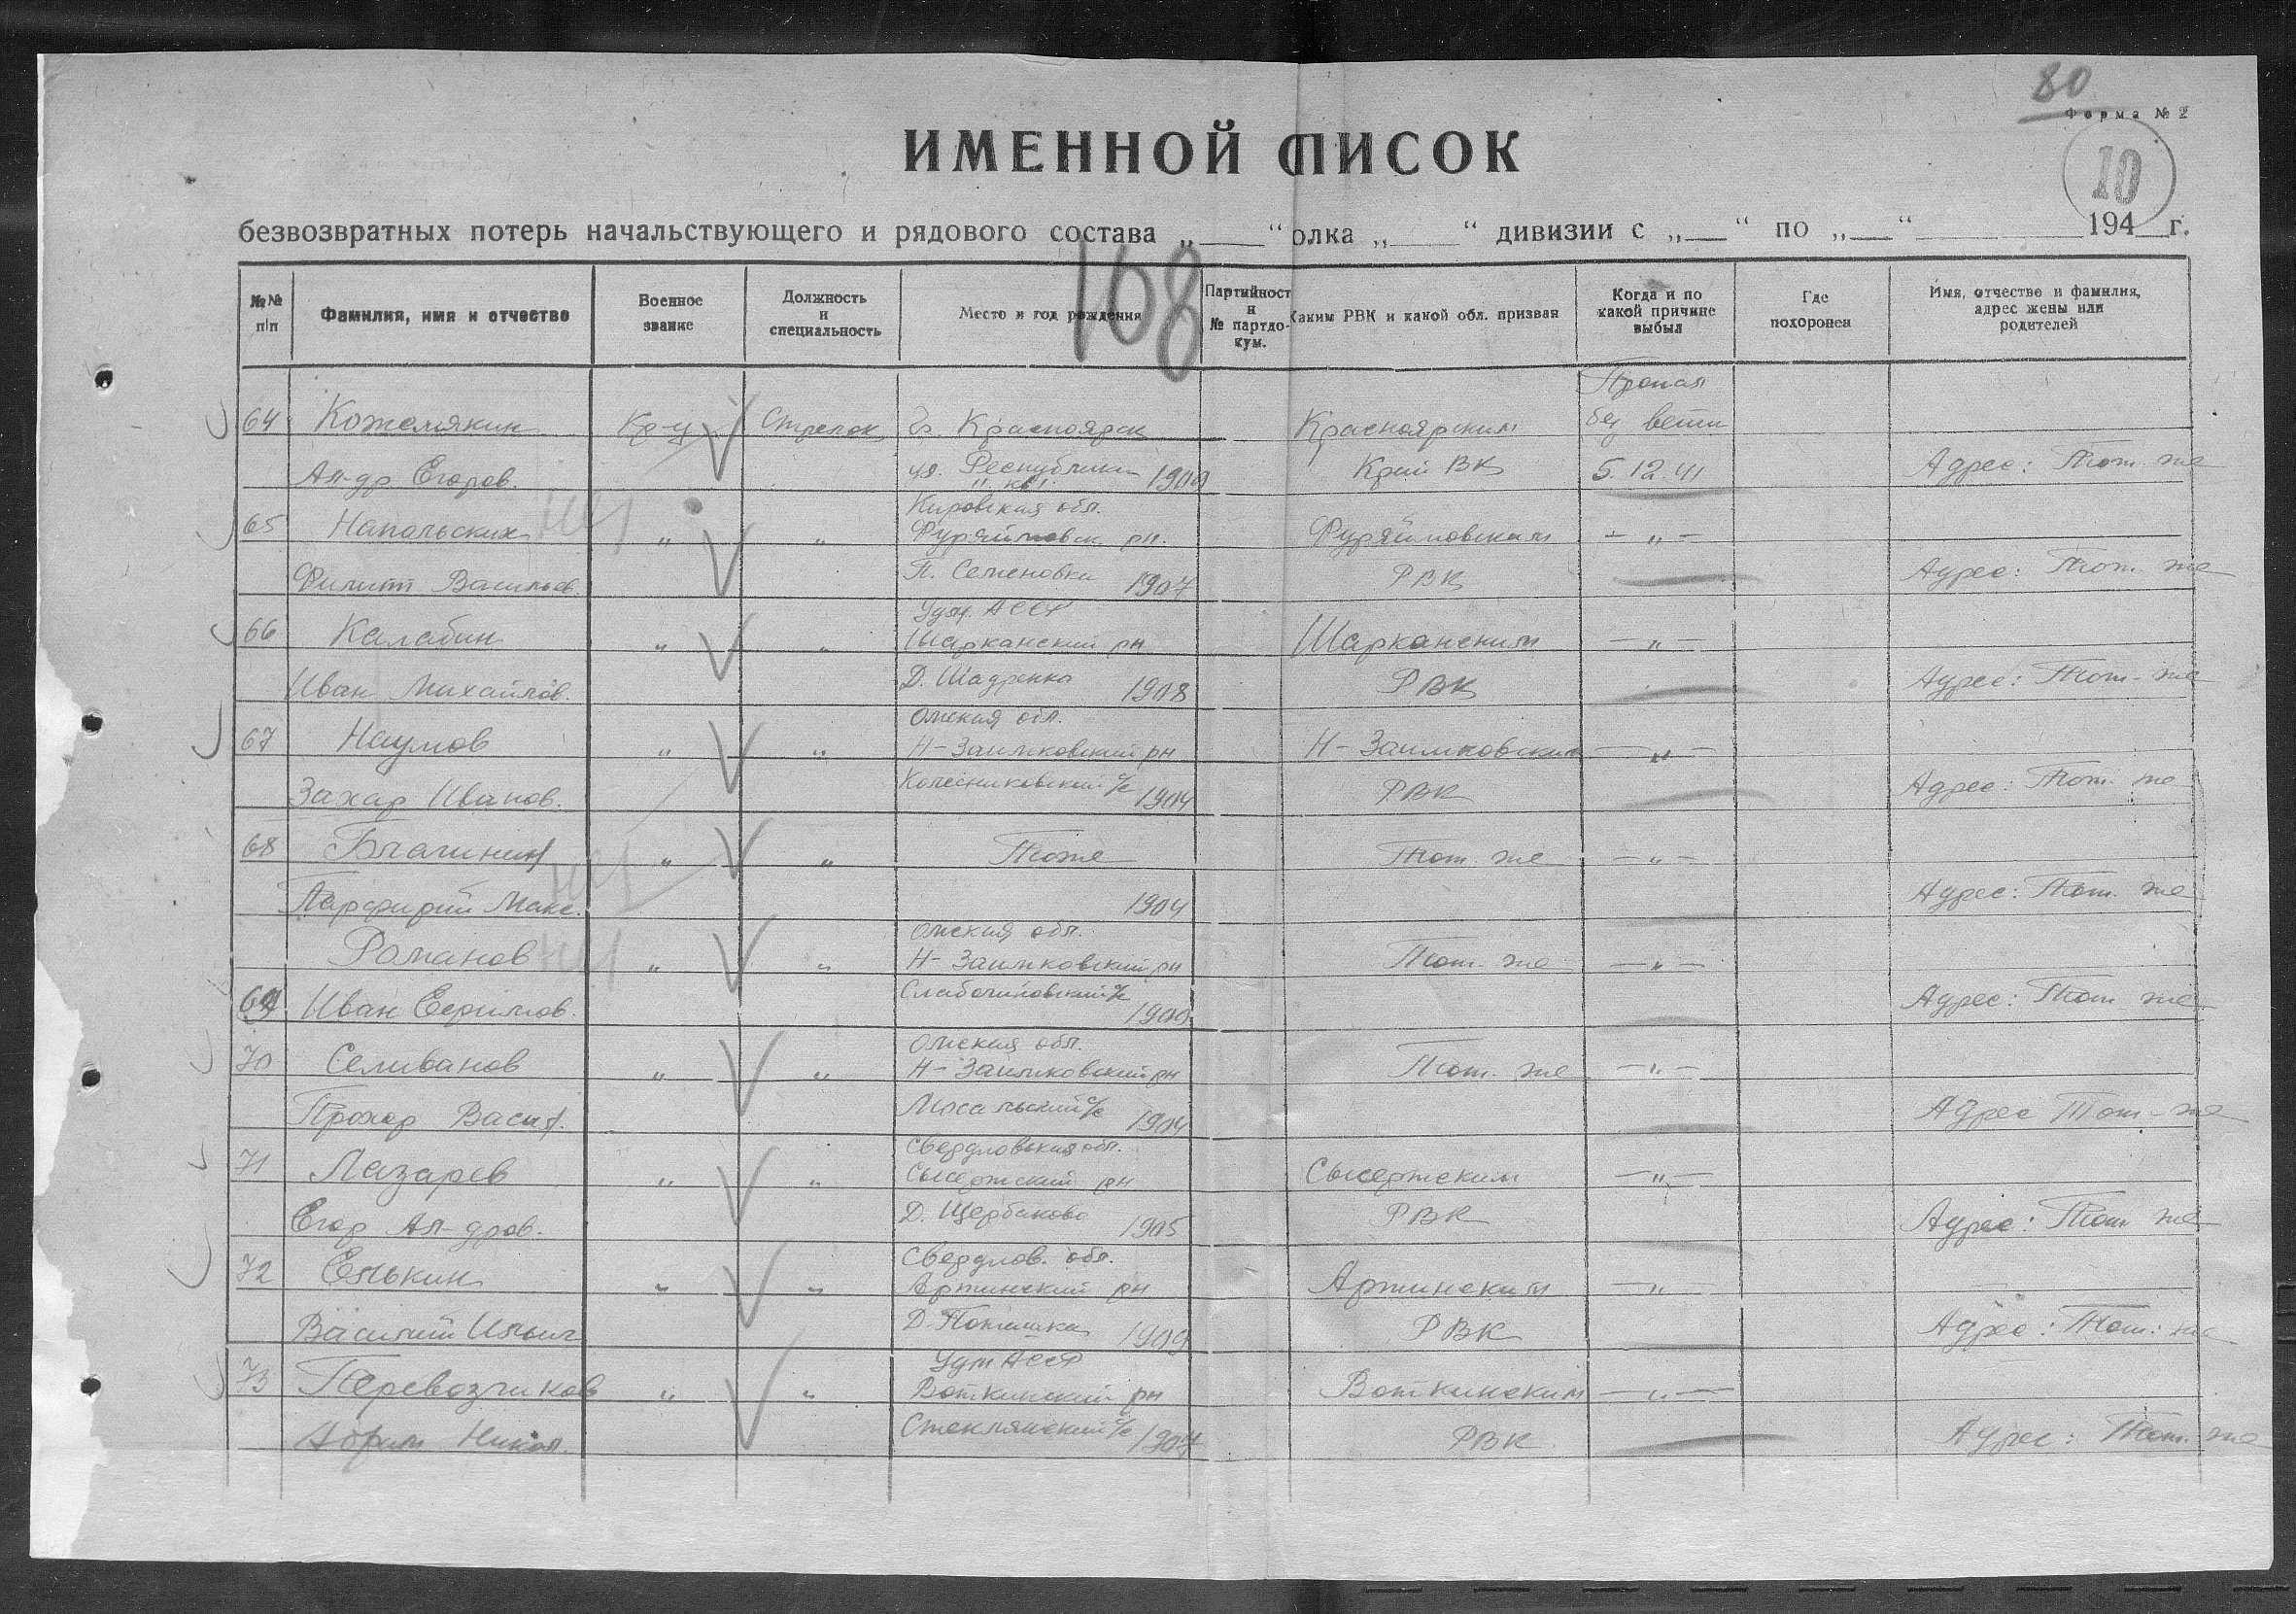 80
Форма № 2
10
ИМЕННОЙ СПИСОК
безвозвратных потерь начальствующего и рядового состава „___“ олка „___“ дивизии с „___“ по „___“ ______ 194__г.
108
№№ п/п
Фамилия, имя и отчество
Военное звание
Должность и специальность
Место и год рождения
Партийност и № партдокум.
Каким РВК и какой обл. призван
Когда и по какой причине выбыл
Где похоронен
Имя, отчество и фамилия, адрес жены или родителей
Пропал
64 Кожемякин Кр-ц Стрелок г. Красноярск Красноярским без вести
Ал-др Егоров. ул. Республики 1900 Край ВК 5.12.41 Адрес: Тот же
Кировская обл.
65 Напольских „ „ рн. РВК – „ –
Филипп Васильев. Семеновка 1907 Адрес: Тот же
Удм. АССР
66 Калабин „ „ Шарканский рн Шарканским – „ –
Иван Михайлов. Д. 1908 РВК Адрес: Тот-же
Омская обл.
67 Наумов „ „ Н-Заимковский рн Н-Заимковским – „ –
Захар Иванов. Колесниковский с/с 1904 РВК Адрес: Тот же
68 „ „ Тоже Тот же – „ –
Парфирий Макс. 1904 Адрес: Тот же
Омская обл.
Романов „ „ Н-Заимковский рн Тот же – „ –
69 Иван Ефимов. 1900 Адрес: Тот же
Омская обл.
70 Селиванов „ „ Н-Заимковский рн Тот же – „ –
Прохор Васил. с/с 1904 Адрес Тот-же
Свердловская обл.
71 Лазарев „ „ Сысертский рн Сысертским – „ –
Егор Ал-дров. Д. Щербаково 1905 РВК Адрес: Тот же
Свердлов. обл.
72 Елькин „ „ Артинский рн Артинским – „ –
Василий Ильич Д. 1909 РВК Адрес: Тот же
Удм АССР
73 Перевозчиков „ „ Воткинский рн Воткинским – „ –
Абрам Никол. с/с 1907 РВК Адрес: Тот же